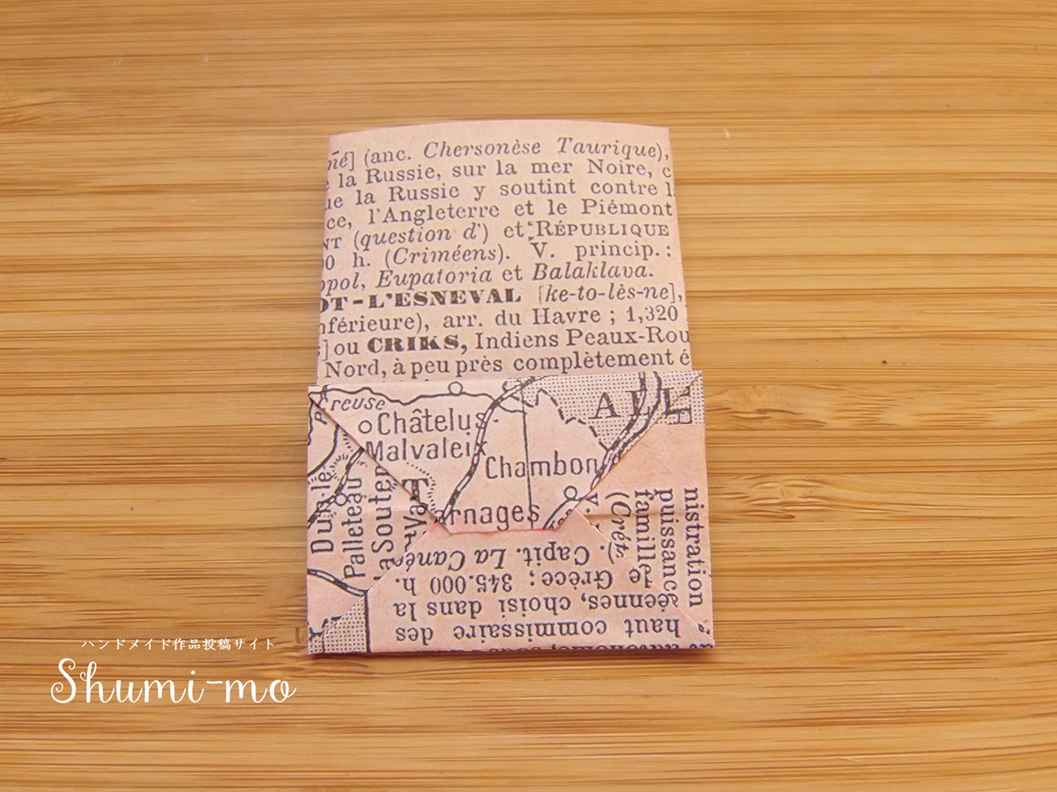 né] (anc. Chersonèse Taurique),
la Russie, sur la mer Noire, c
ue la Russie y soutint contre l
ce, l'Angleterre et le Piémont
NT (question d') et RÉPUBLIQUE
0 h. (Criméens). V. princip.:
opol, Eupatoria et Balaklava.
OT-L'ESNEVAL [ke-to-lès-ne],
nférieure), arr. du Havre ; 1,320
] ou CRIKS, Indiens Peaux-Rou
Nord, à peu près complètement é
reuse
Châtelus-
Malvaleix
AIL
Chambon
rnages
Dun le
Palleteau
la Souter
Va
T
nistration
puissance
famille
(Crét
v.
). Capit. La Cané
de Grèce ; 345.000 h.
éennes, choisi dans la
haut commissaire des
ハンドメイド作品投稿サイト
Shumi-mo